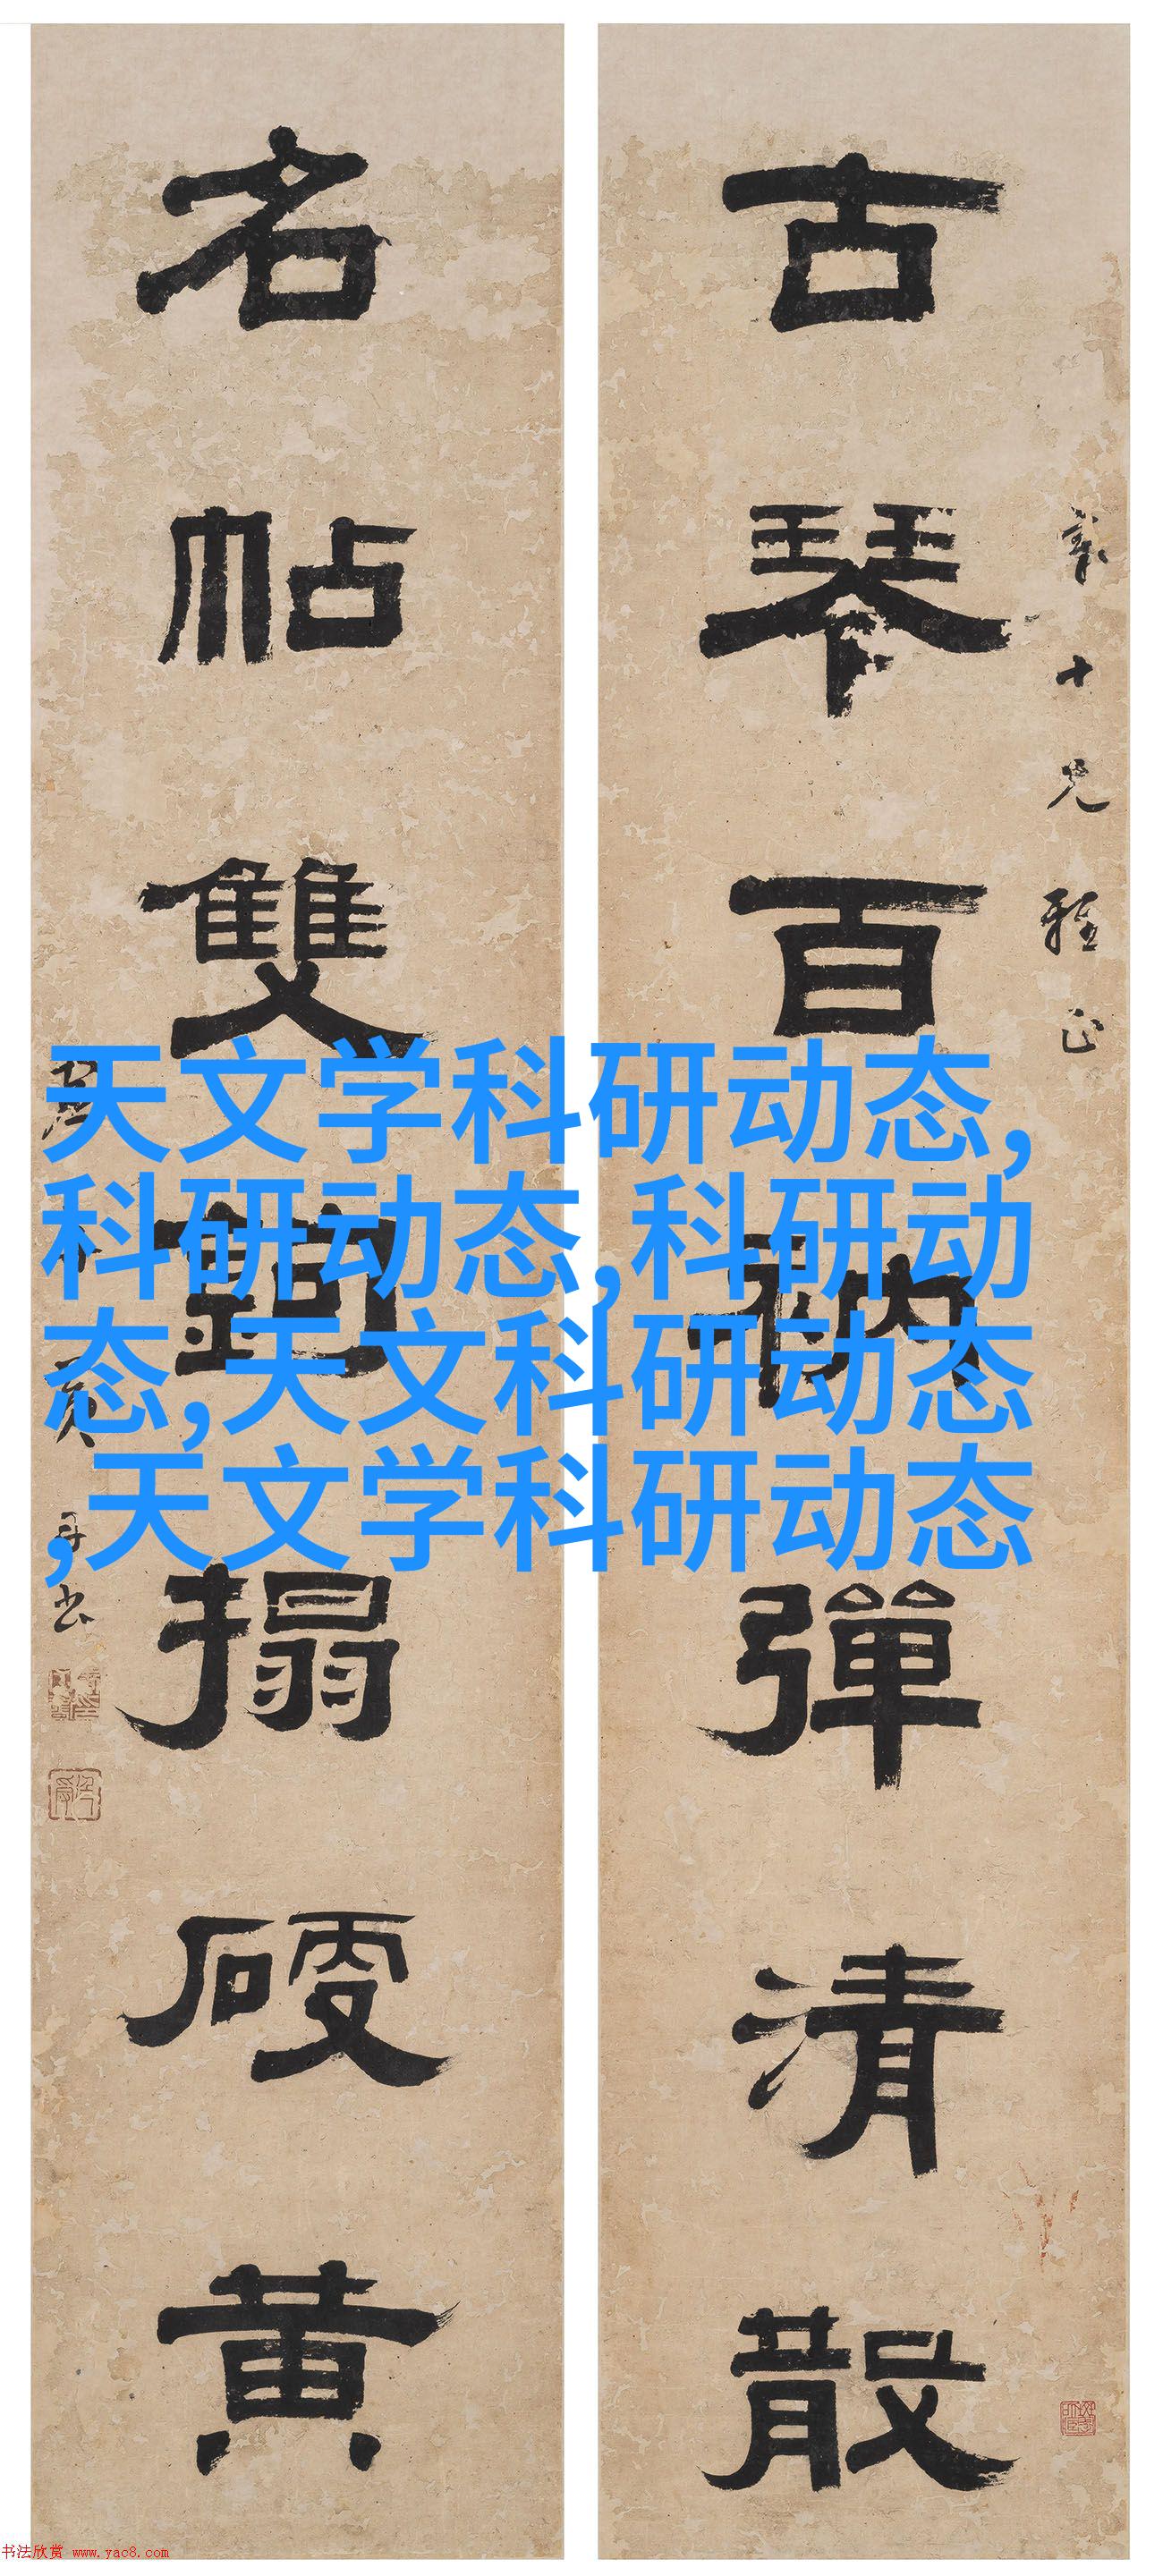 十兄雅正
古琴百衲彈清散
名帖雙鉤搨硬黄
天文学科研动态,
科研动态,科研动
态,天文科研动态
,天文学科研动态
书法欣赏 www.yac8.com